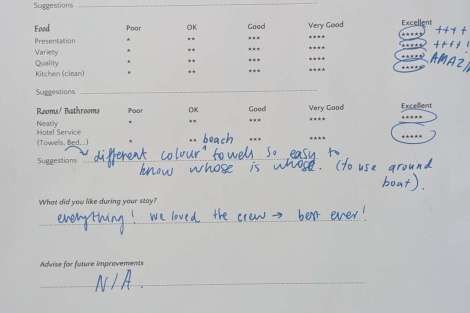 Suggestions
Food Poor OK Good Very Good Excellent
Presentation * ** *** **** ***** ++++
Variety * ** *** **** ***** ++++!
Quality * ** *** **** *****
Kitchen (clean) * ** *** **** *****
Suggestions
Rooms/ Bathrooms Poor OK Good Very Good Excellent
Neatly * ** *** **** *****
Hotel Service
(Towels, Bed,..) * ** *** **** *****
beach
Suggestions different colour ^ towels so easy to
know whose is whose. (to use around
boat).
What did you like during your stay?
everything! we loved the crew → best ever!
Advise for future improvements
N/A.